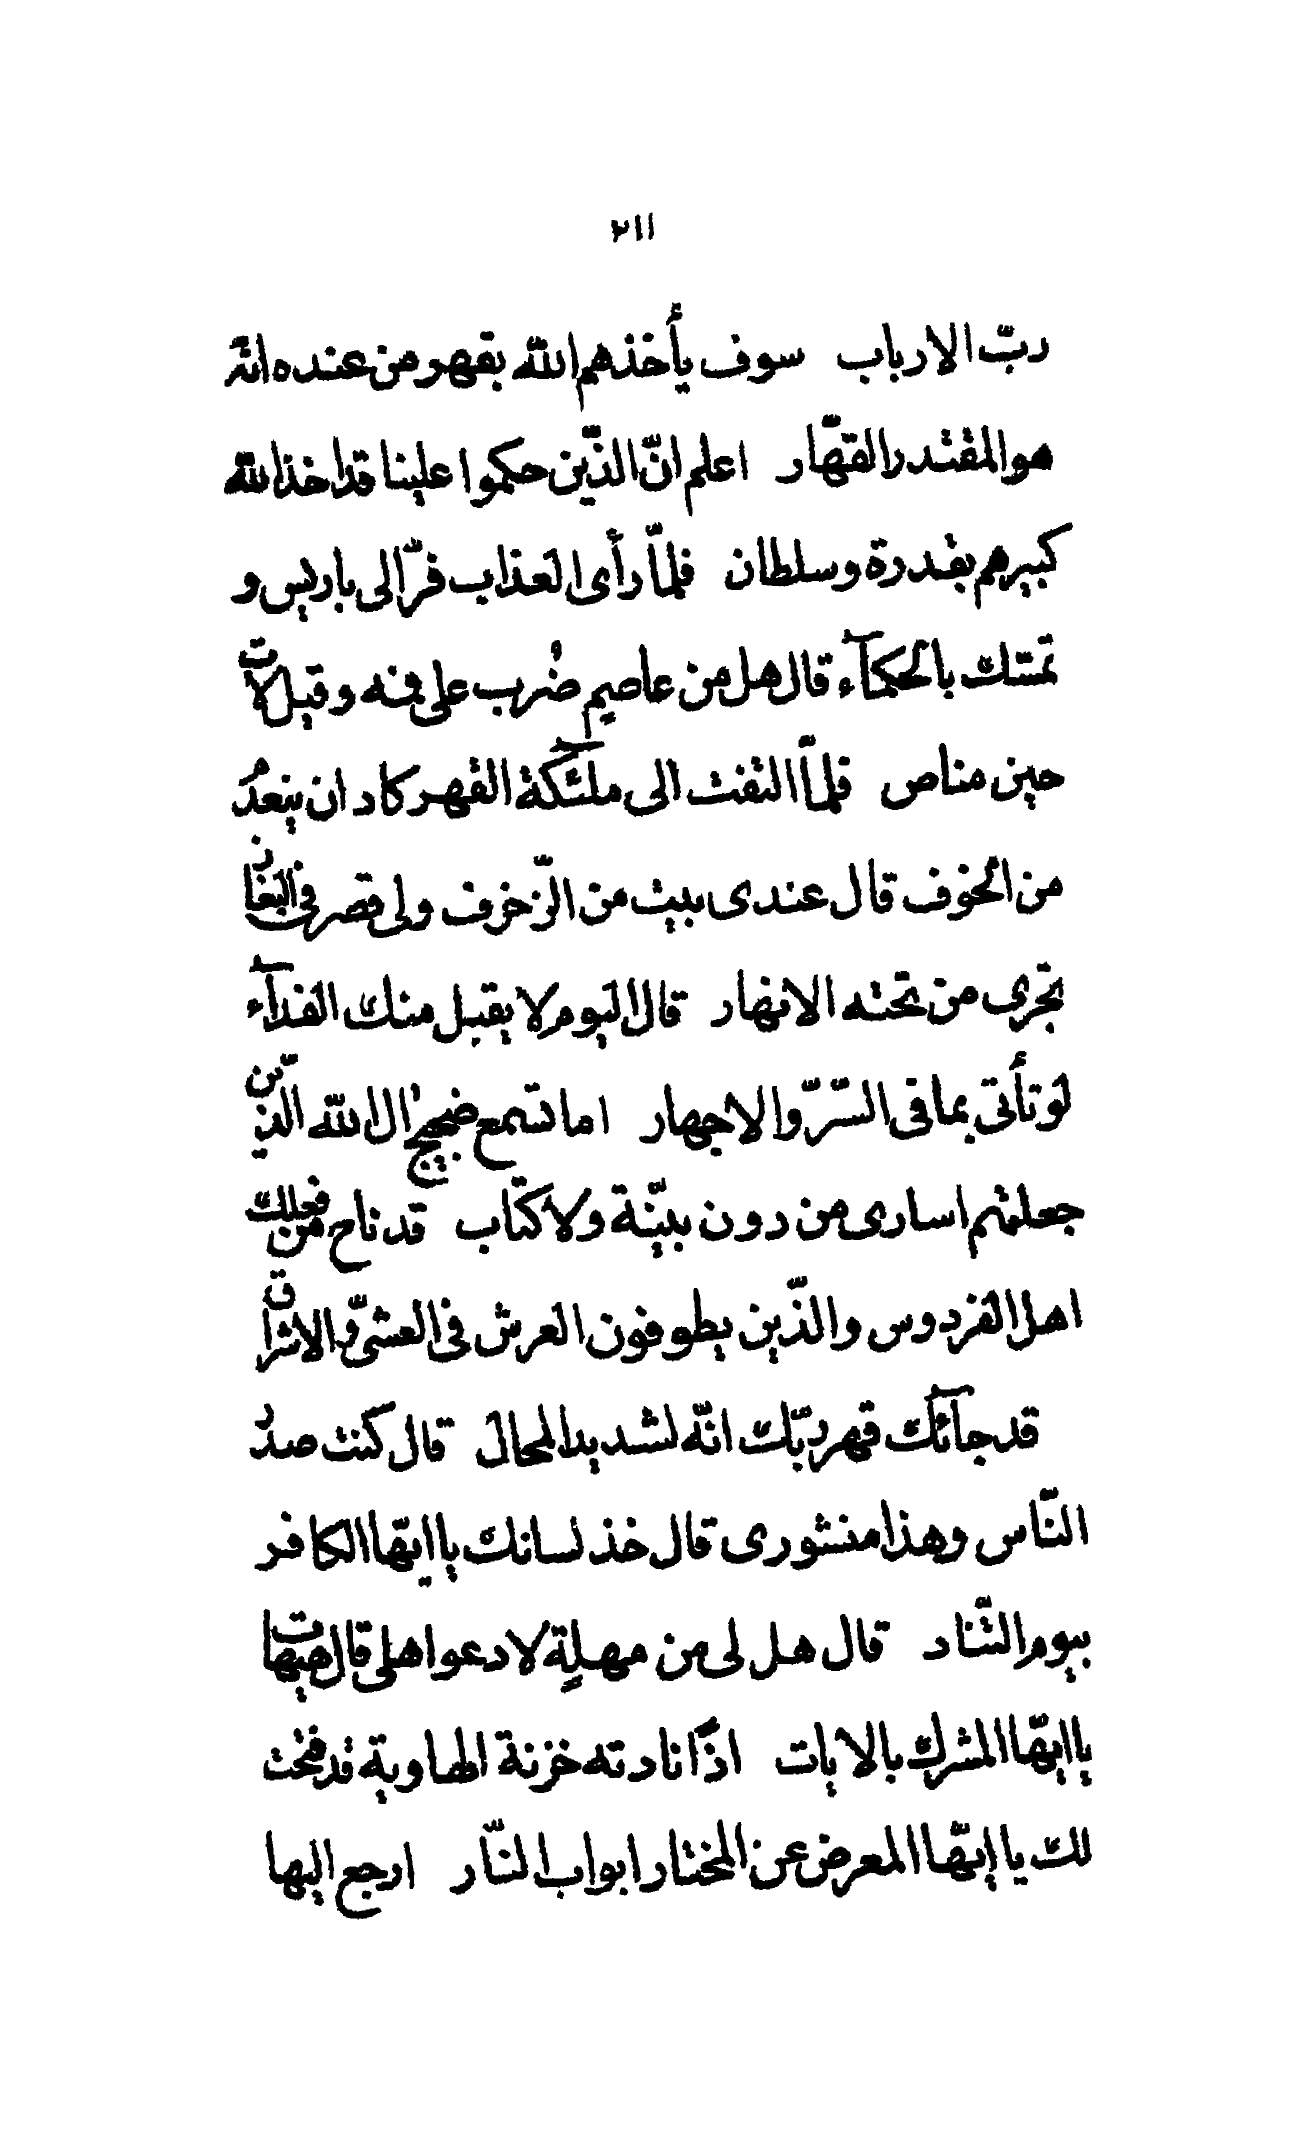 ٢١١
ربّ الارباب سوف يأخذهم الله بقهر من عنده انّه
هو المقتدر القهّار اعلم انّ الذّين حكموا علينا قد اخذ الله
كبيرهم بقدرة و سلطان فلمّا رأى العذاب فرّ الى باريس و
تمسّك بالحكمآء قال هل من عاصمٍ ضُرب على فمه و قيل لات
حين مناص فلمّا التفت الى ملئكة القهر كاد ان ينعدم
من الخوف قال عندى بيت من الزّخرف و لى قصر فى البغاز
تجرى من تحته الانهار قال اليوم لا يقبل منك الفدآء
لو تأتى بما فى السّرّ و الاجهار اما تسمع ضجيج ال الله الذّين
جعلتهم اسارى من دون بيّنة و لا كتاب قد ناح من فعلك
اهل الفردوس و الذّين يطوفون العرش فى العشىّ و الاشراق
قد جآئك قهر ربّك انّه لشديد المحال قال كنت صدر
النّاس و هذا منشورى قال خذ لسانك يا ايّها الكافر
بيوم التّناد قال هل لى من مهلةٍ لادعوا هلى قال هيهات
يا ايّها المشرك بالايات اذًا نادته خزنة الهاوية قد فتحت
لك يا ايّها المعرض عن المختار ابواب النّار ارجع اليها